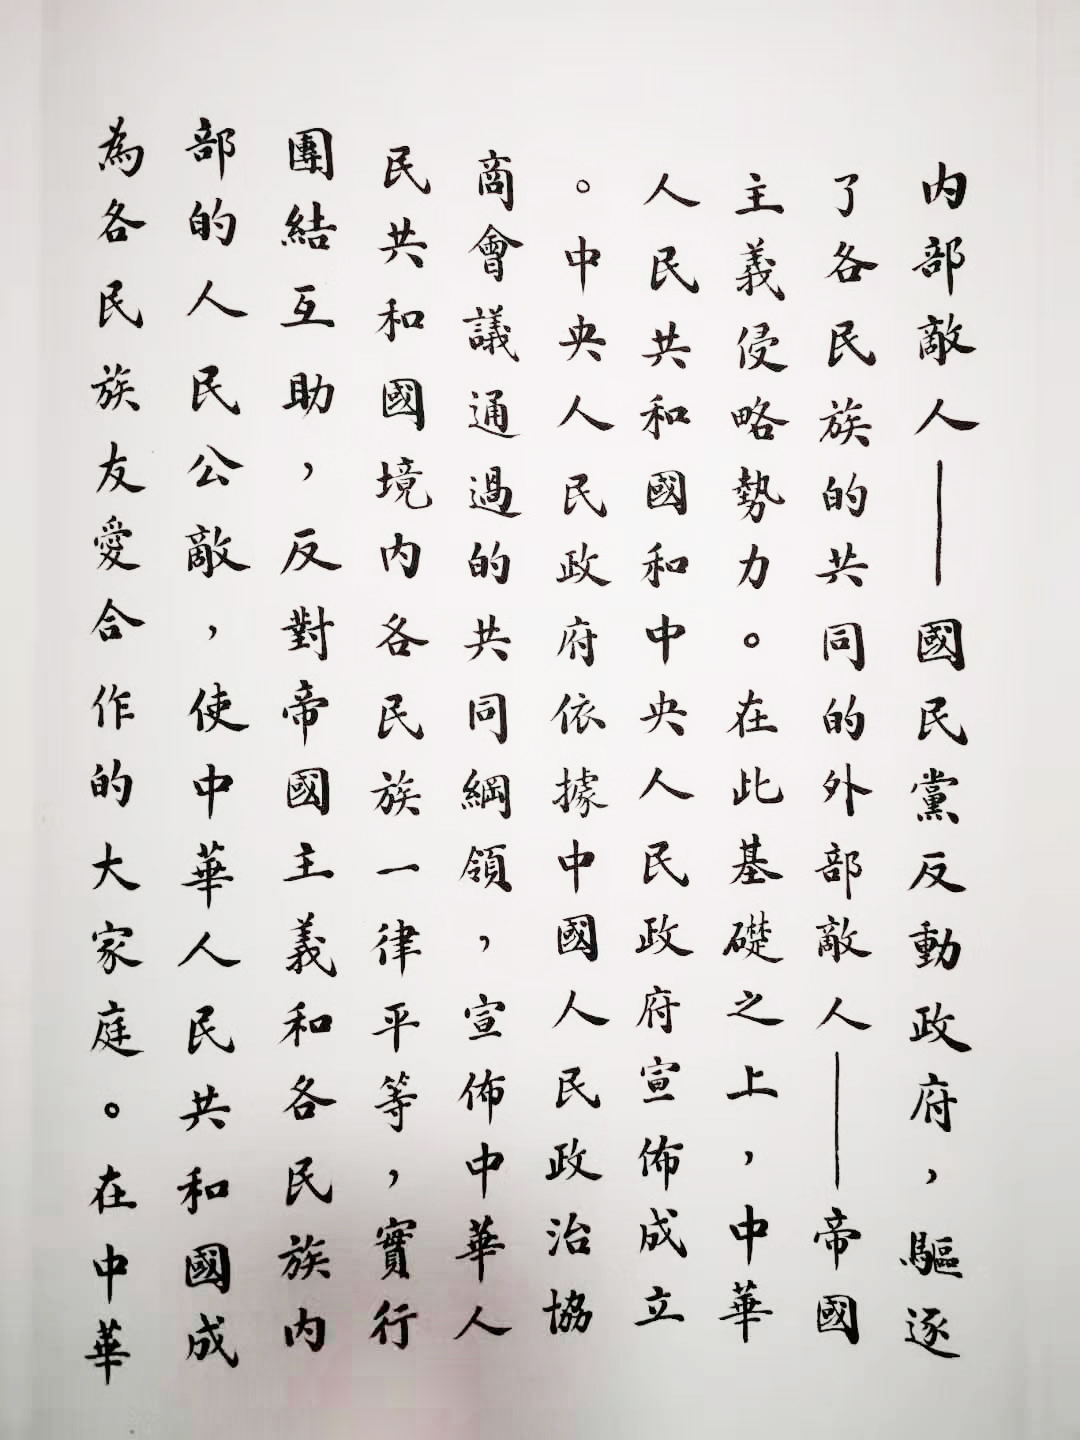 内部敵人——國民黨反動政府，驅逐
了各民族的共同的外部敵人——帝國
主義侵略勢力。在此基礎之上，中華
人民共和國和中央人民政府宣佈成立
。中央人民政府依據中國人民政治協
商會議通過的共同綱領，宣佈中華人
民共和國境内各民族一律平等，實行
團結互助，反對帝國主義和各民族内
部的人民公敵，使中華人民共和國成
為各民族友愛合作的大家庭。在中華